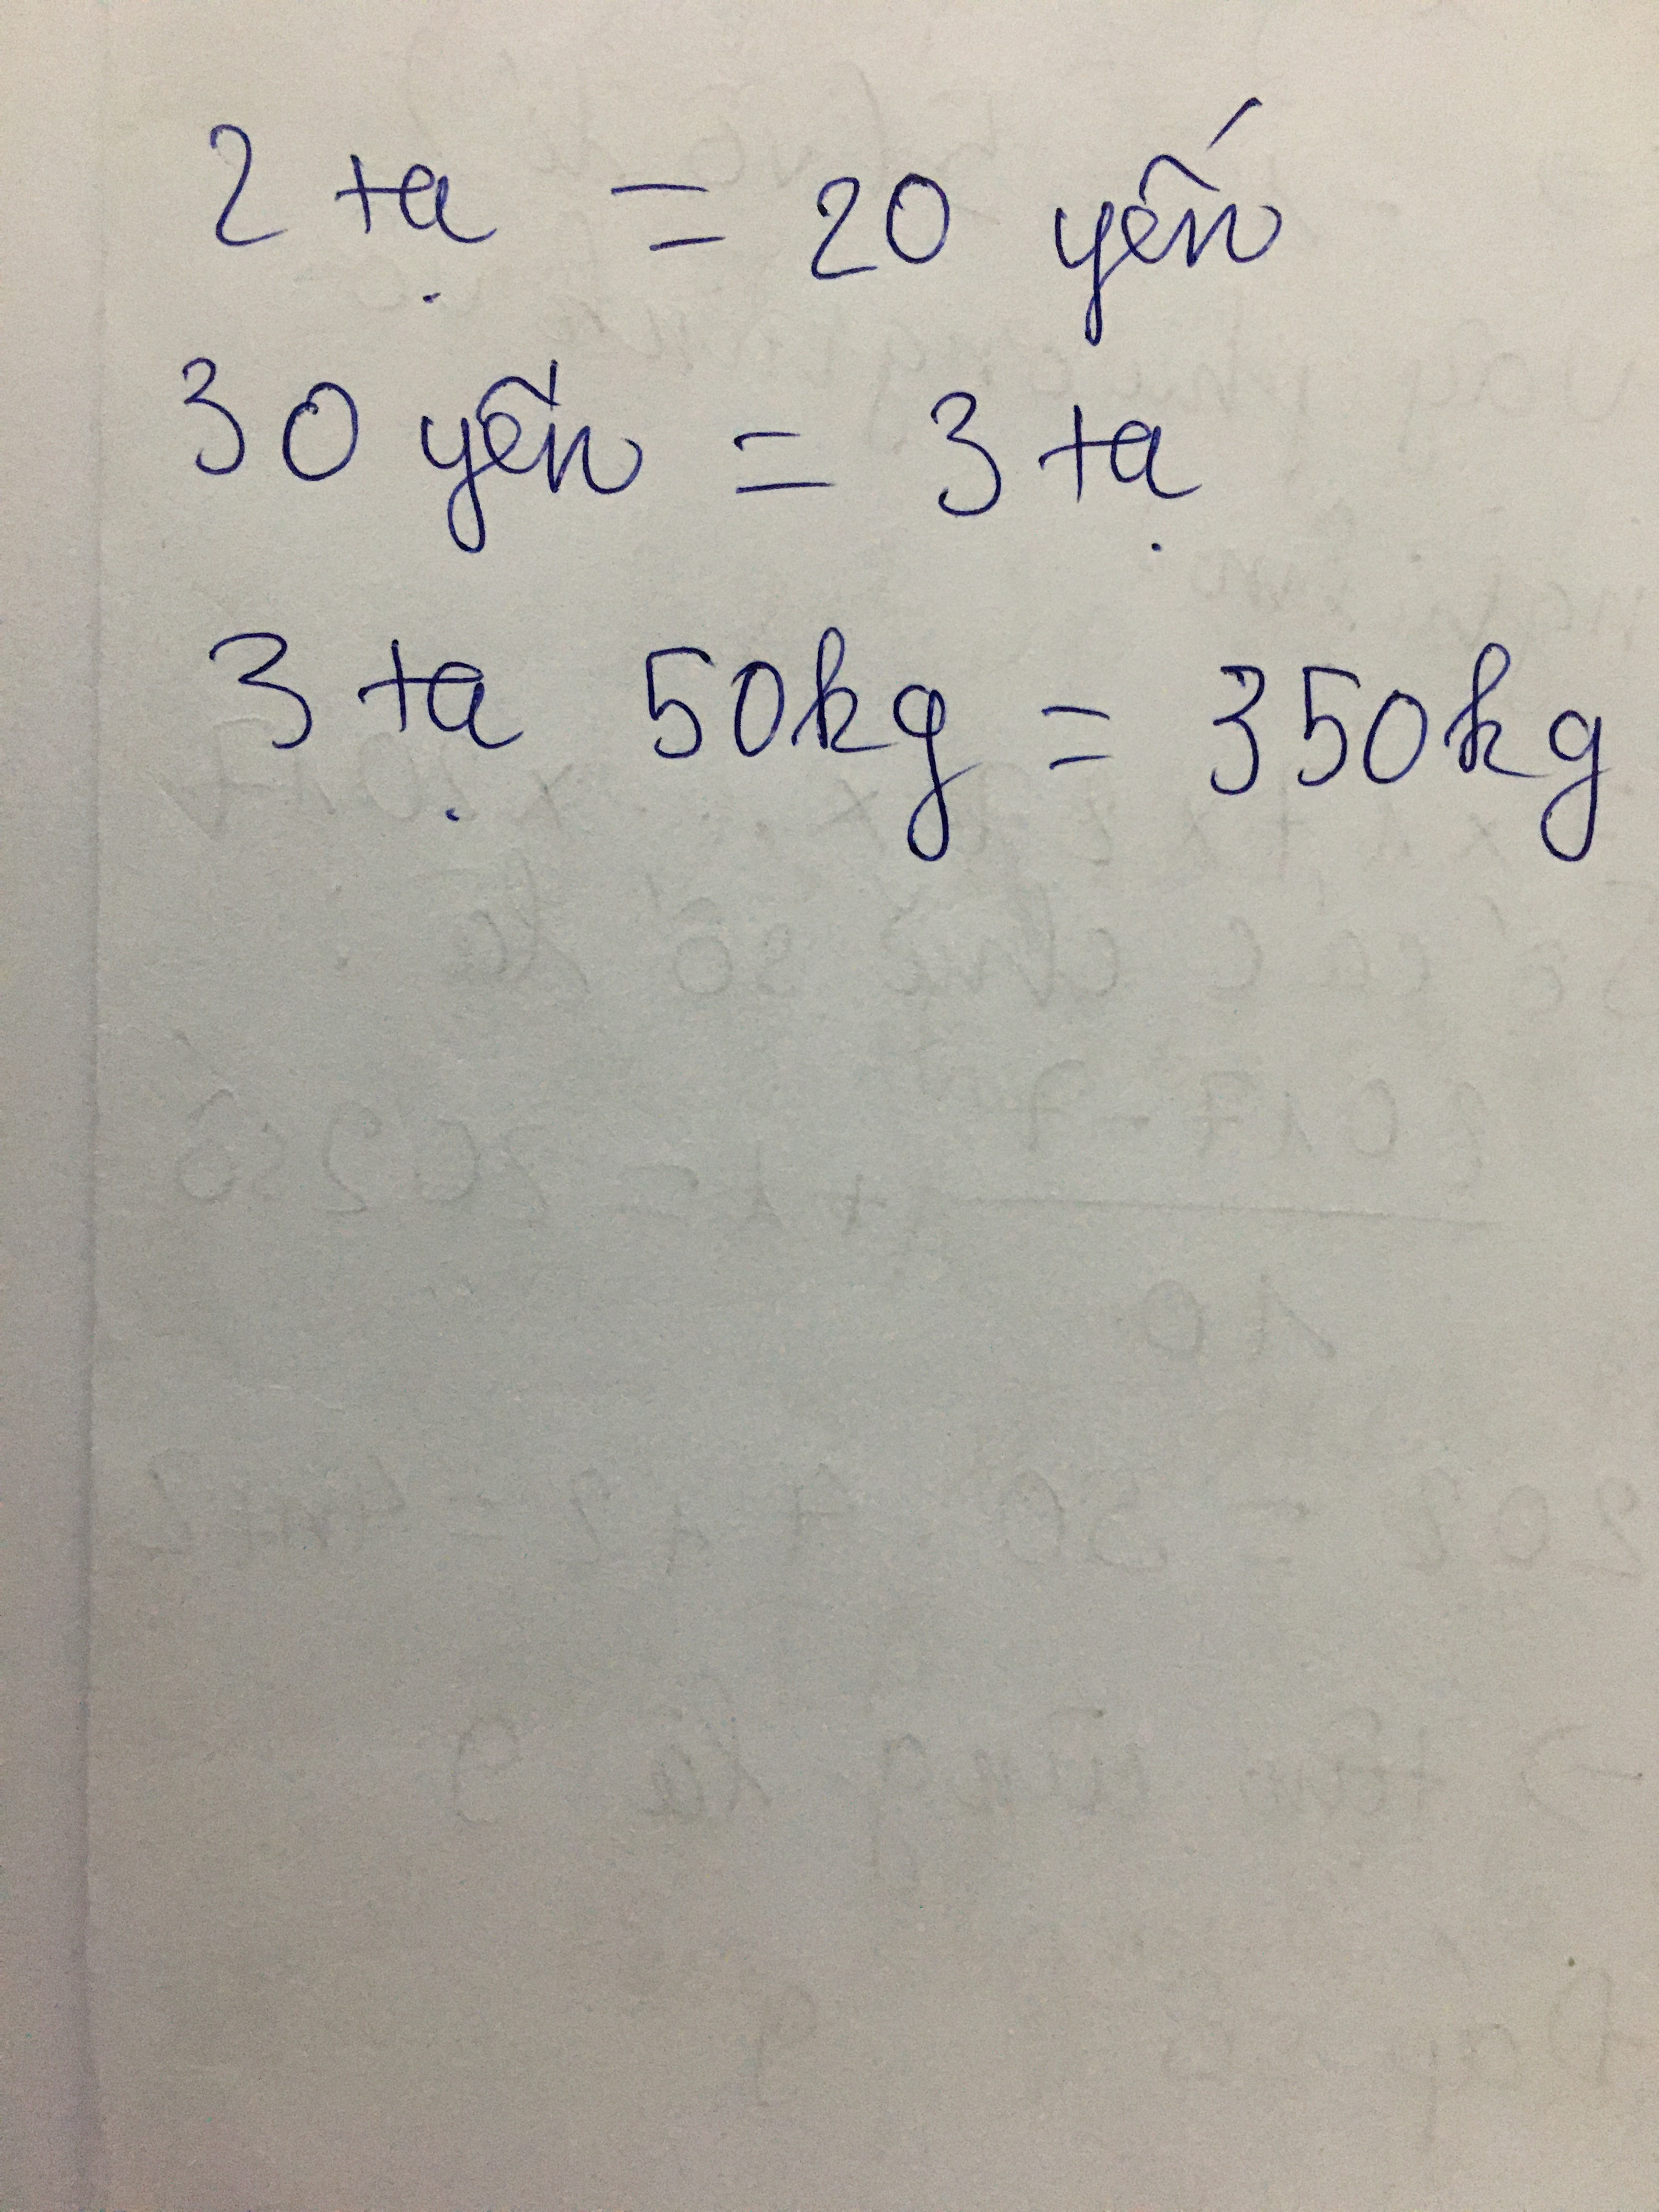 2 tạ = 20 yến
30 yến = 3 tạ
3 tạ 50kg = 350kg